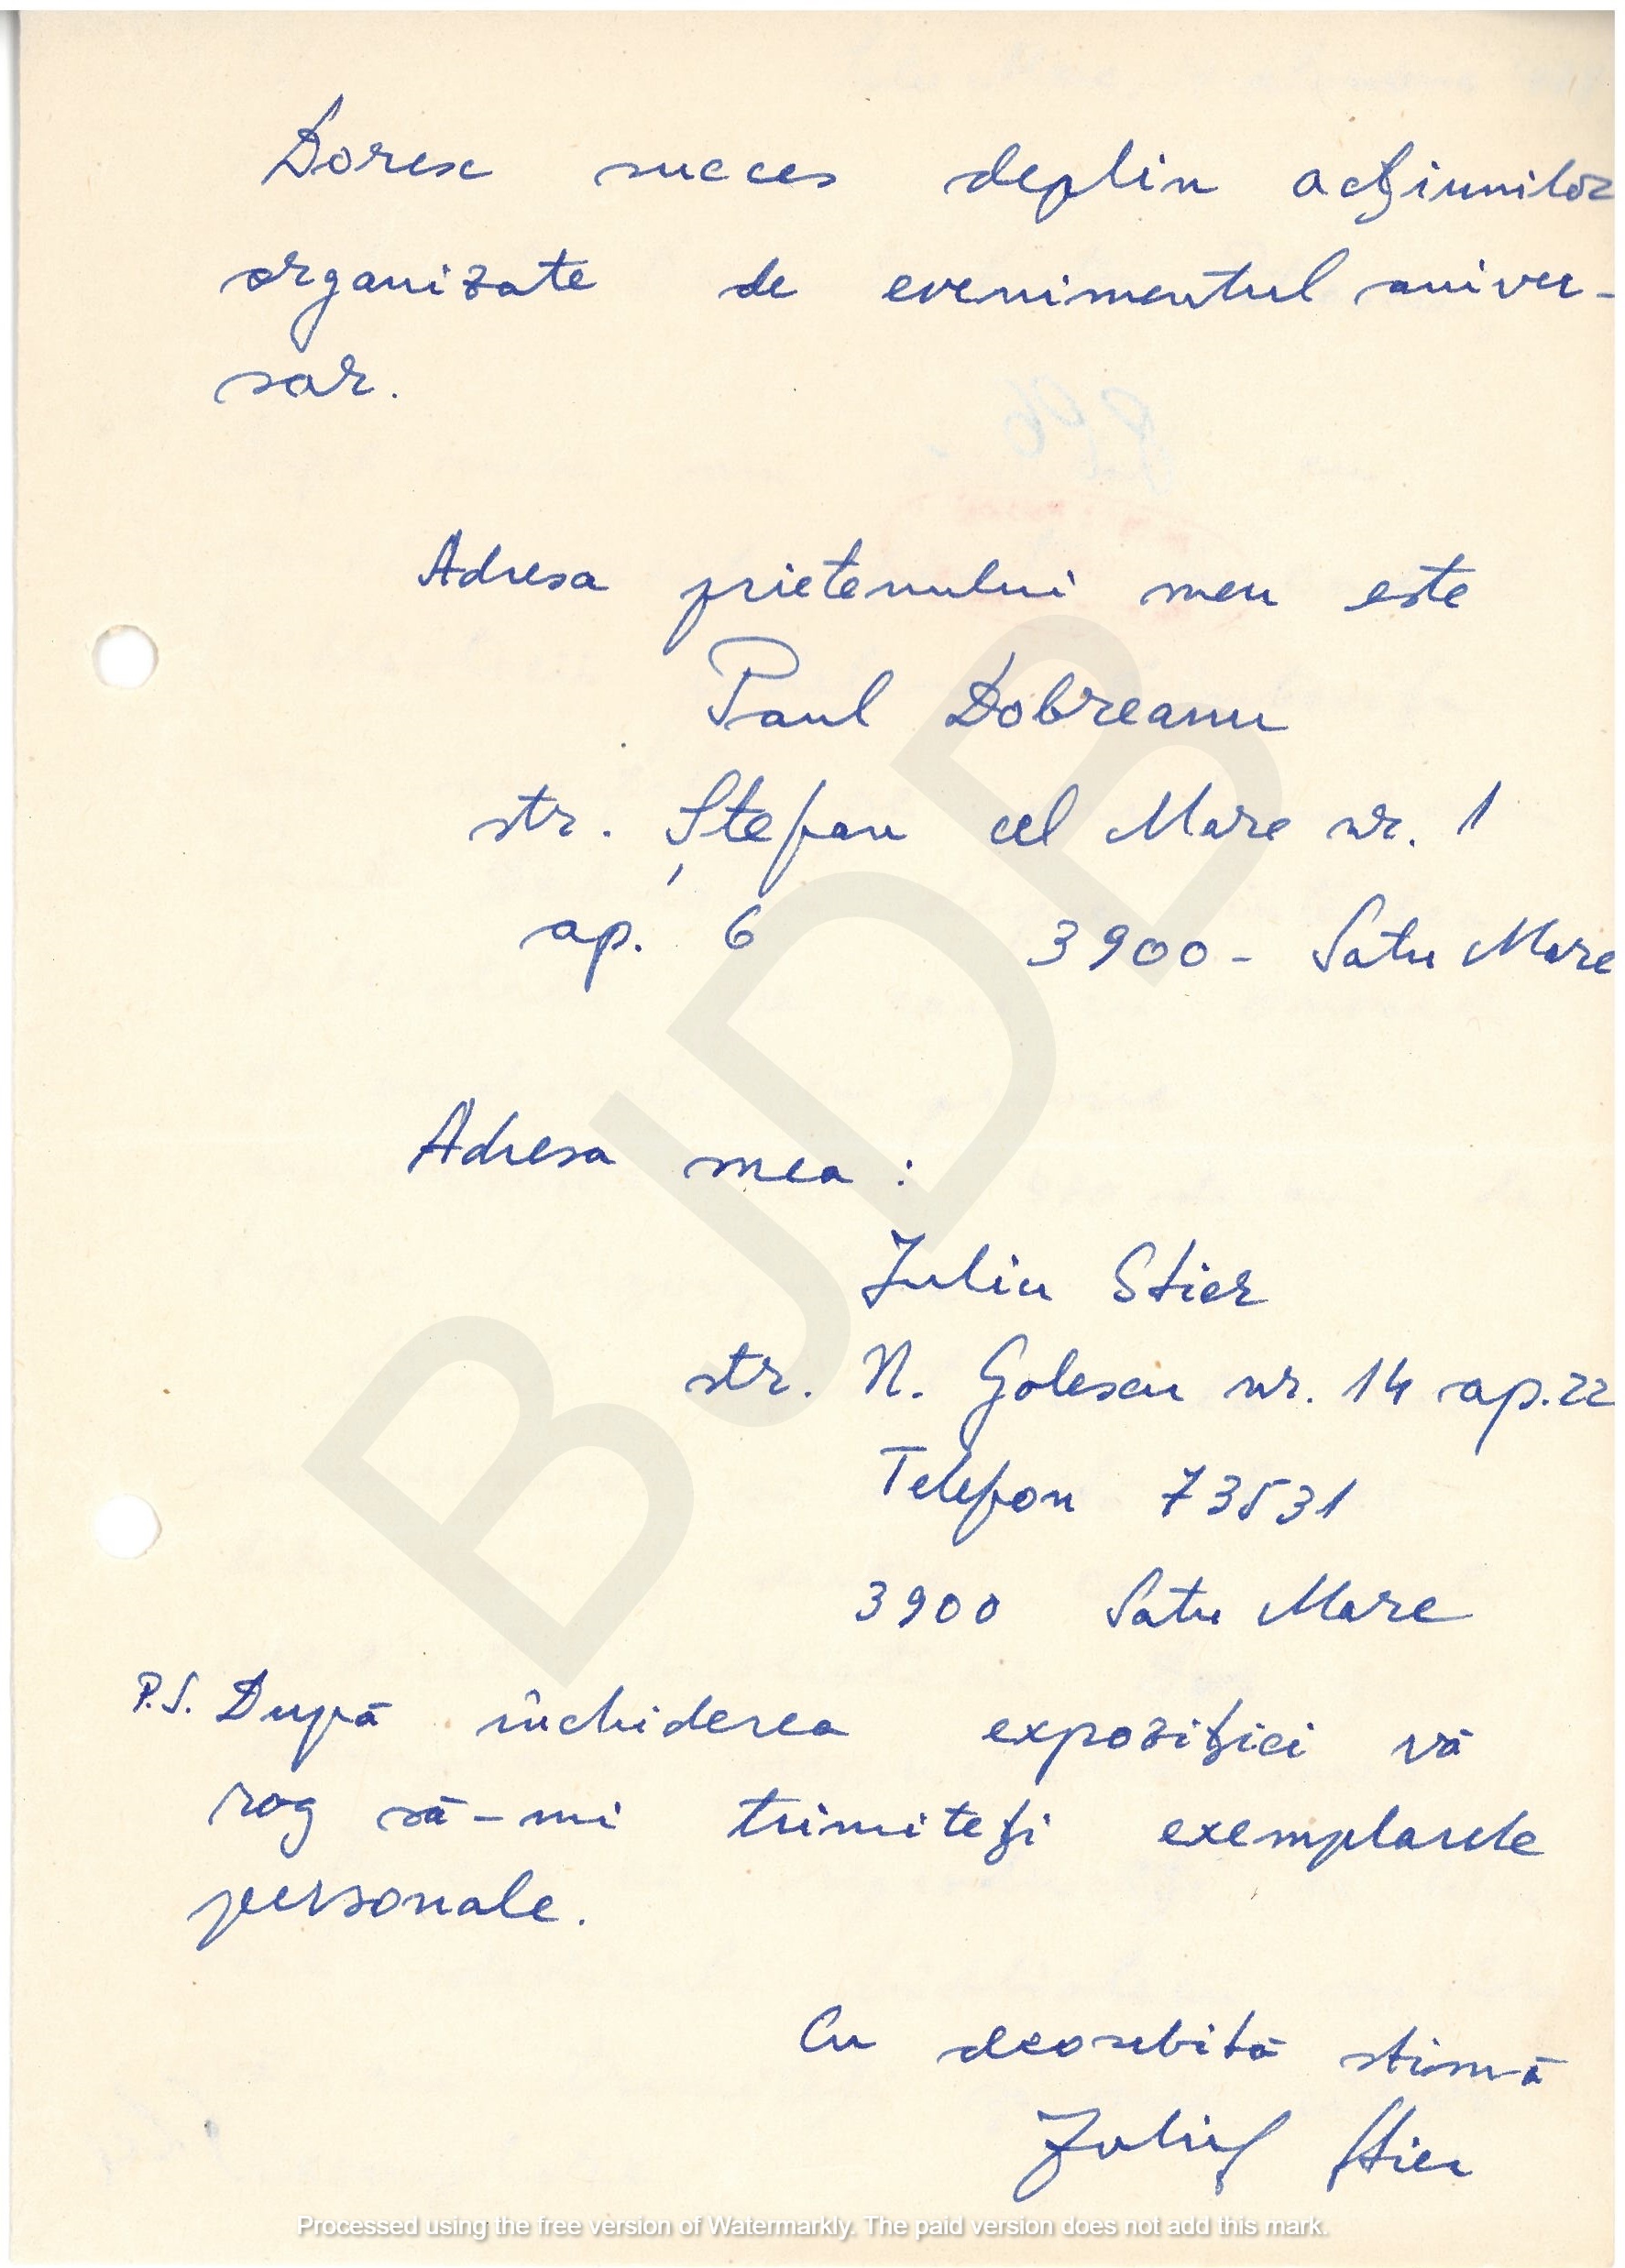 Doresc succes deplin acțiunilor
organizate de evenimentul aniver-
sar.
Adresa prietenului meu este
Paul Dobreanu
str. Ștefan cel Mare nr. 1
ap. 6 3900 - Satu Mare
Adresa mea :
Iuliu Stier
str. N. Golescu nr. 14 ap. 22
Telefon 73531
3900 Satu Mare
P.S. După închiderea expoziției vă
rog să-mi trimiteți exemplarele
personale.
Cu deosebită stimă
Iuliu Stier
BJDB
Processed using the free version of Watermarkly. The paid version does not add this mark.